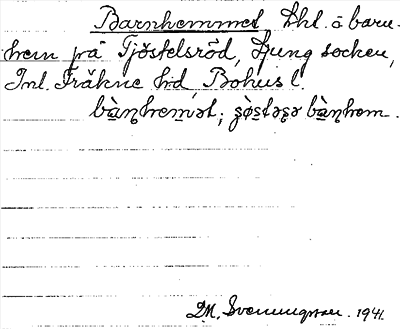 Barnhemmet bhl. å barn-
hem på Tjöstelsröd, Ljung socken,
Inl. Fräkne hd, Bohus l.
bàṇhemət; ʂö̀stəʂə bàṇhem.
D.M. Svenningsson. 1941.